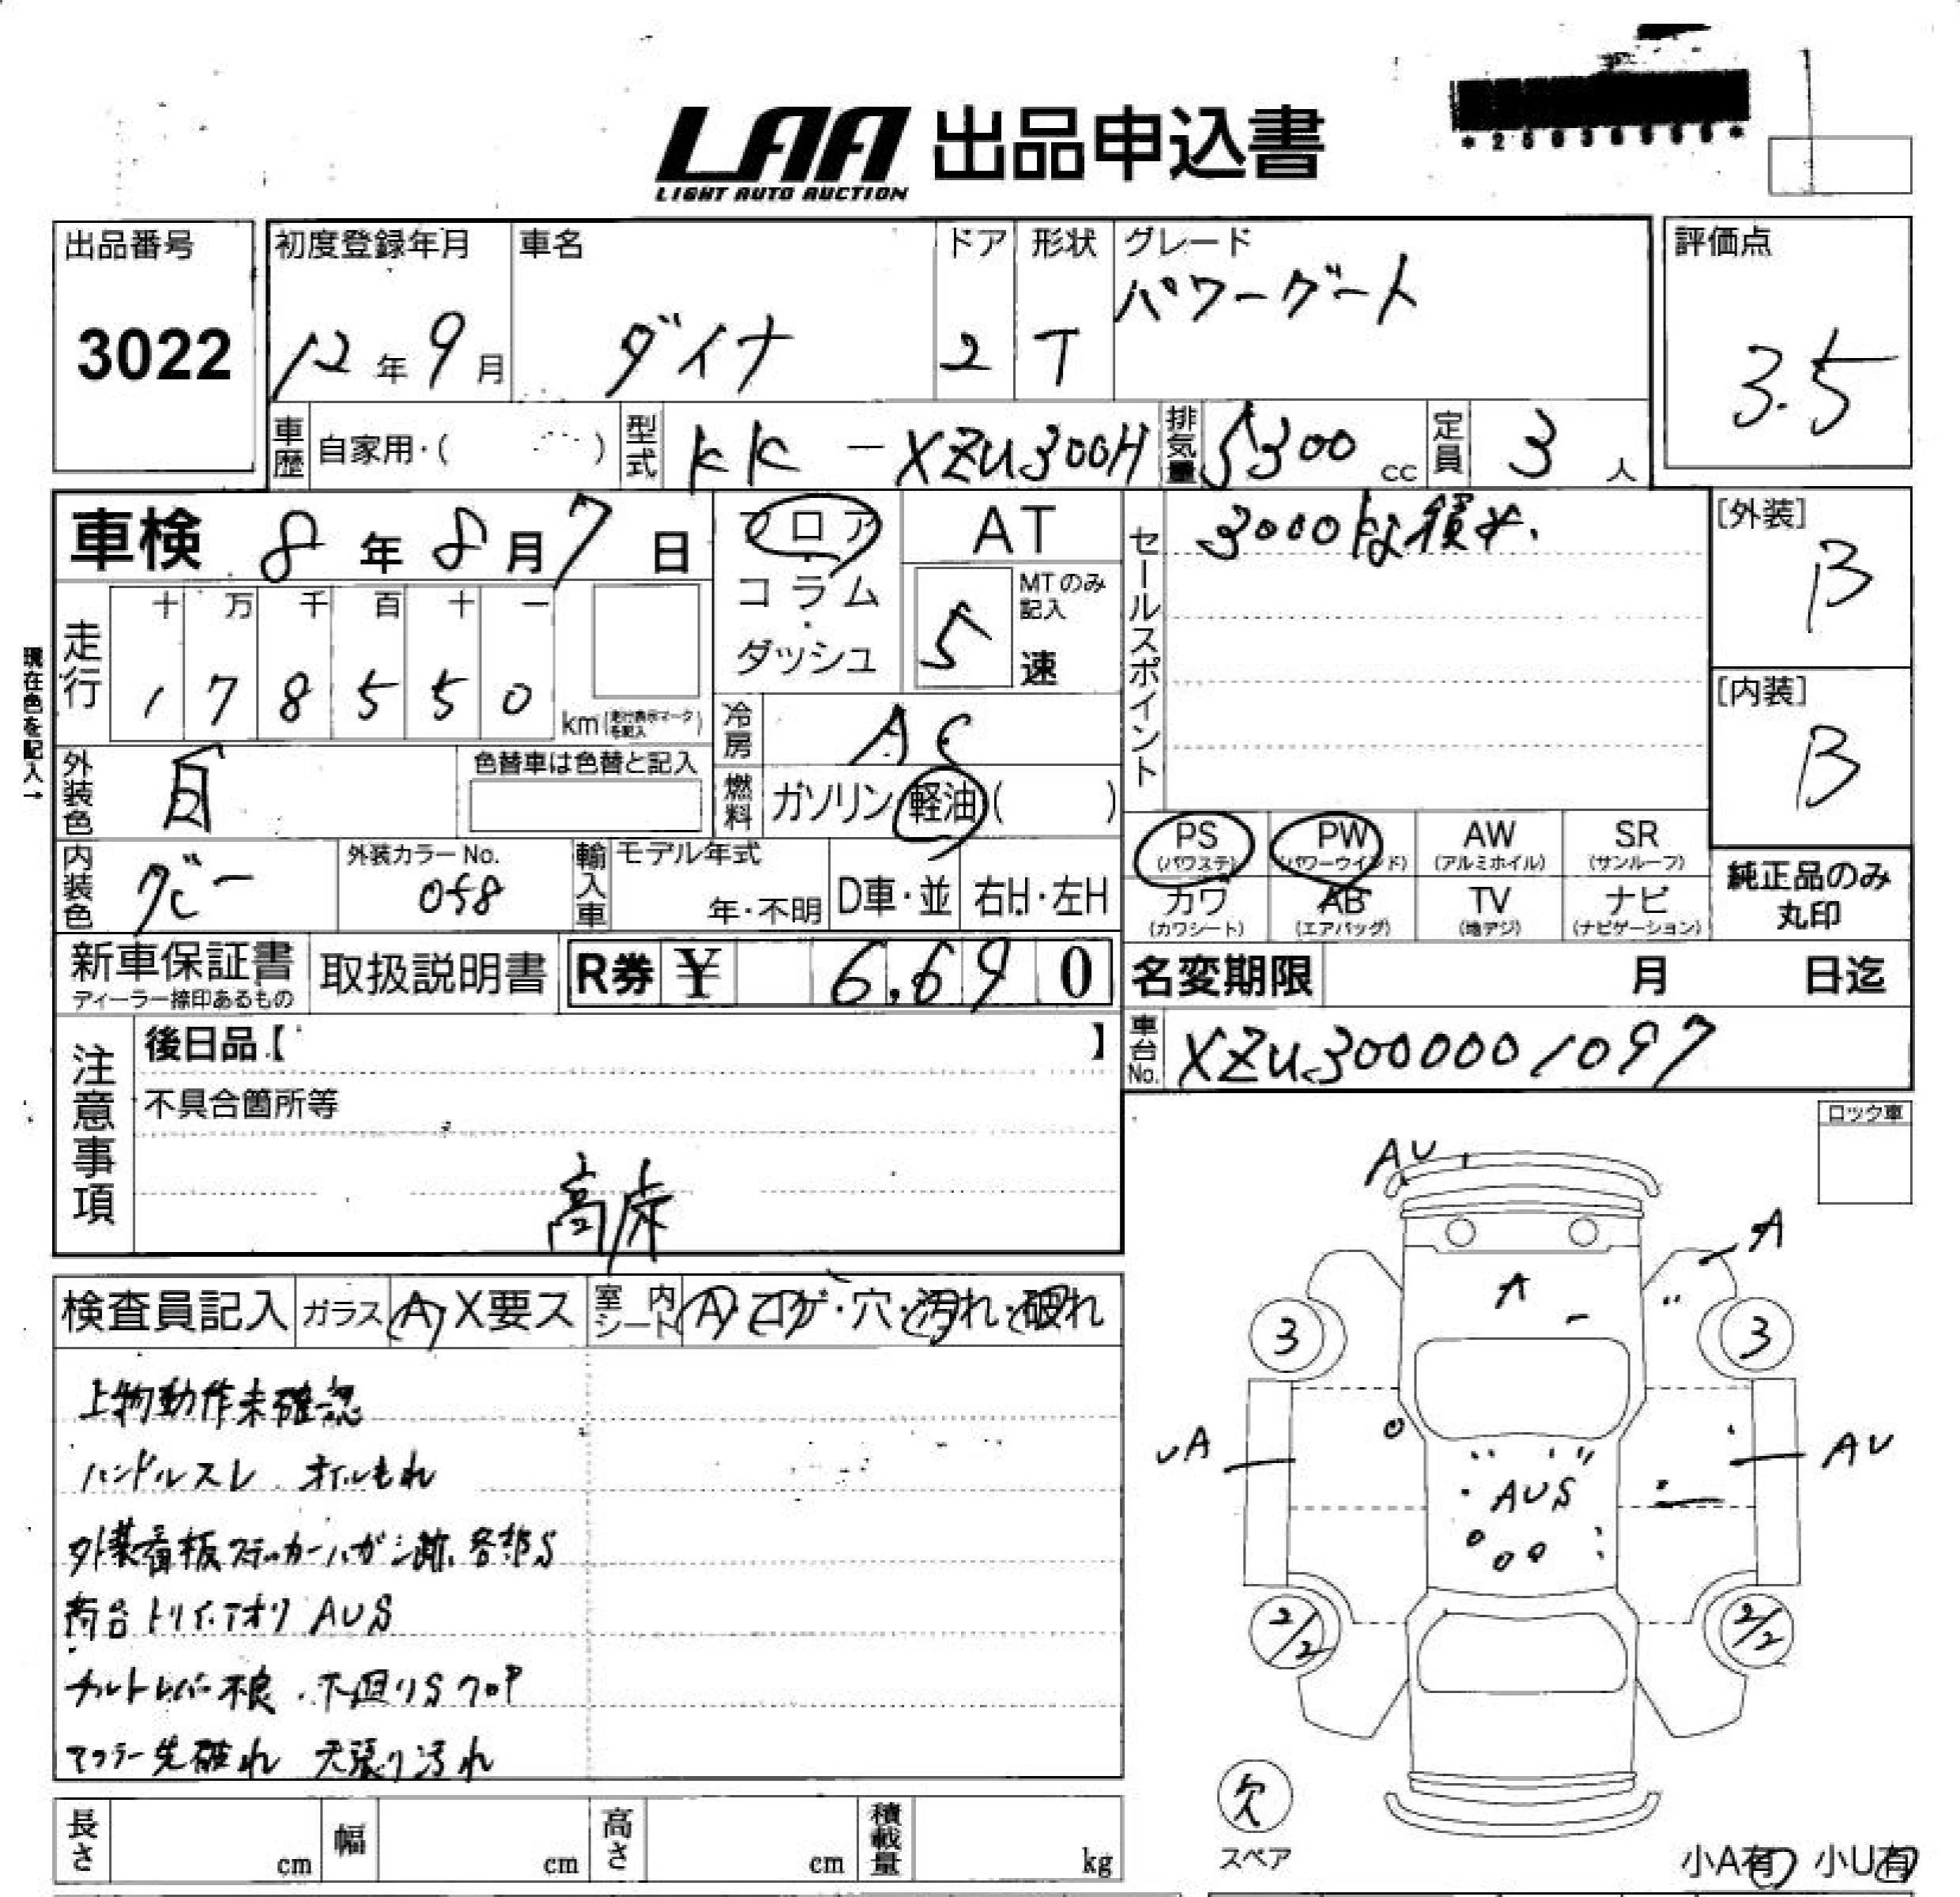 LAA 出品申込書
LIGHT AUTO AUCTION
出品番号
3022
初度登録年月
12年9月
車名
ダイナ
ドア
2
形状
T
グレード
パワーゲート
評価点
3.5
車歴 自家用・( )
型式 KK-XZU300H
排気量 5300cc
定員 3人
車検 8年8月7日
フロア・コラム・ダッシュ
AT
MTのみ記入
5速
セールスポイント
3000kg積み.
[外装]
B
[内装]
B
現在色を記入→
走行
十万千百十一
178550km(走行表示マークを記入)
冷房 AC
外装色 白
色替車は色替と記入
燃料 ガソリン・軽油( )
PS (パワステ)
PW (パワーウインド)
AW (アルミホイル)
SR (サンルーフ)
カワ (カワシート)
AB (エアバッグ)
TV (地デジ)
ナビ (ナビゲーション)
純正品のみ丸印
内装色 グレー
外装カラーNo.
058
輸入車 モデル年式
年・不明
D車・並
右H・左H
新車保証書
ディーラー捺印あるもの
取扱説明書
R券 ¥ 6,690
名変期限 月 日迄
車台No. XZU3000001097
注意事項
後日品【 】
不具合箇所等
高床
検査員記入 ガラス A・X要ス 室内シート A・コゲ・穴・汚れ・破れ
上物動作未確認
ハンドルスレ オイルもれ
外装看板ステッカーハガシ跡、各部S
荷台トリイ・アオリ AUS
チルトレバー不良・下回りS
マフラー先破れ 天張り汚れ
長さ cm
幅 cm
高さ cm
積載量 kg
ロック車
AU
A
A
3
3
UA
AU
AUS
2/2
2/2
欠
スペア
小A有 小U有